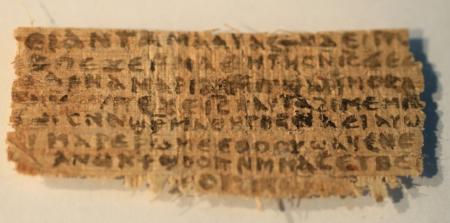 ⲉⲓ ⲁⲛ ⲧⲁⲙⲁⲁⲩ ⲁⲥϯ ⲛⲁⲉⲓ ⲡ
ⲡⲉϫⲉ ⲙⲙⲁⲑⲏⲧⲏⲥ ⲛⲓⲥ ϫⲉ
ⲁⲣⲛⲁ ⲙⲁⲣⲓⲁⲙ
ⲡⲉϫⲉ ⲓⲥ ⲛⲁⲩ ⲧⲁϩⲓⲙⲉ ⲙⲛ
ⲥⲛⲁϣⲣⲙⲁⲑⲏⲧⲏⲥ ⲛⲁⲉⲓ ⲁⲩⲱ
ⲙⲁⲣⲉⲣⲱⲙⲉ ⲉⲑⲟⲟⲩ ϣⲁϥⲉ ⲛⲉ
ⲁⲛⲟⲕ ϯϣⲟⲟⲡ ⲛⲙⲙⲁⲥ ⲉⲧⲃⲉ